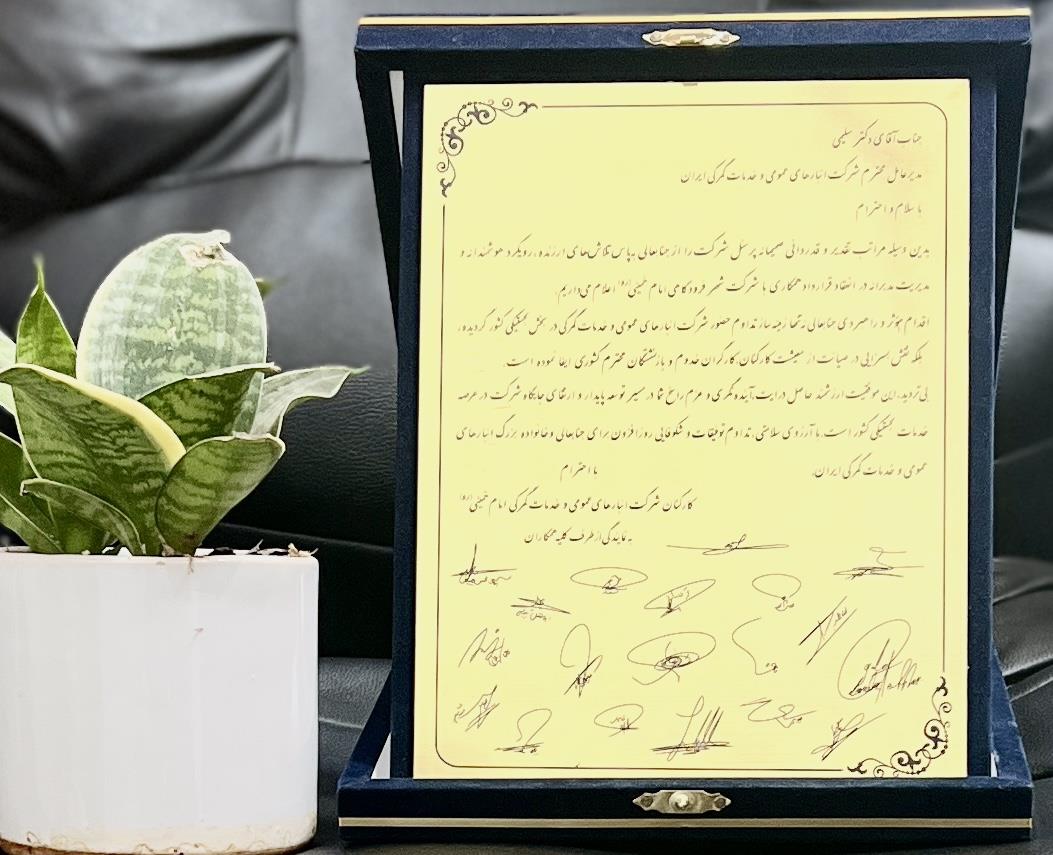 جناب آقای دکتر سلیمی
مدیرعامل محترم شرکت انبارهای عمومی و خدمات گمرکی ایران
با سلام و احترام
بدین وسیله مراتب تقدیر و قدردانی صمیمانه پرسنل شرکت را از جنابعالی به پاس تلاش‌های ارزنده، رویکرد هوشمندانه و
مدیریت مدبرانه در انعقاد قرارداد همکاری با شرکت شهر فرودگاهی امام خمینی(ره) اعلام می‌داریم.
اقدام مؤثر و راهبردی جنابعالی نه تنها زمینه ساز تداوم حضور شرکت انبارهای عمومی و خدمات گمرکی در بخش لجستیکی کشور گردیده،
بلکه نقش بسزایی در صیانت از معیشت کارکنان، کارگران خدوم و بازنشستگان محترم کشوری ایفا نموده است.
بی تردید، این موفقیت ارزشمند حاصل درایت، آینده نگری و عزم راسخ شما در مسیر توسعه پایدار و ارتقای جایگاه شرکت در عرصه
خدمات لجستیکی کشور است. با آرزوی سلامتی، تداوم توفیقات و شکوفایی روزافزون برای جنابعالی و خانواده بزرگ انبارهای
عمومی و خدمات گمرکی ایران.
با احترام
کارکنان شرکت انبارهای عمومی و خدمات گمرکی امام خمینی(ره)
به نمایندگی از طرف کلیه همکاران